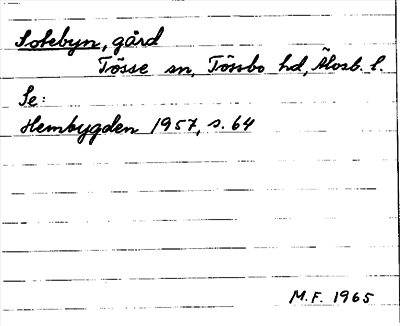 Sotebyn, gård
Tösse sn, Tössbo hd, Älvsb. l.
Se:
Hembygden 1957, s. 64
M.F. 1965